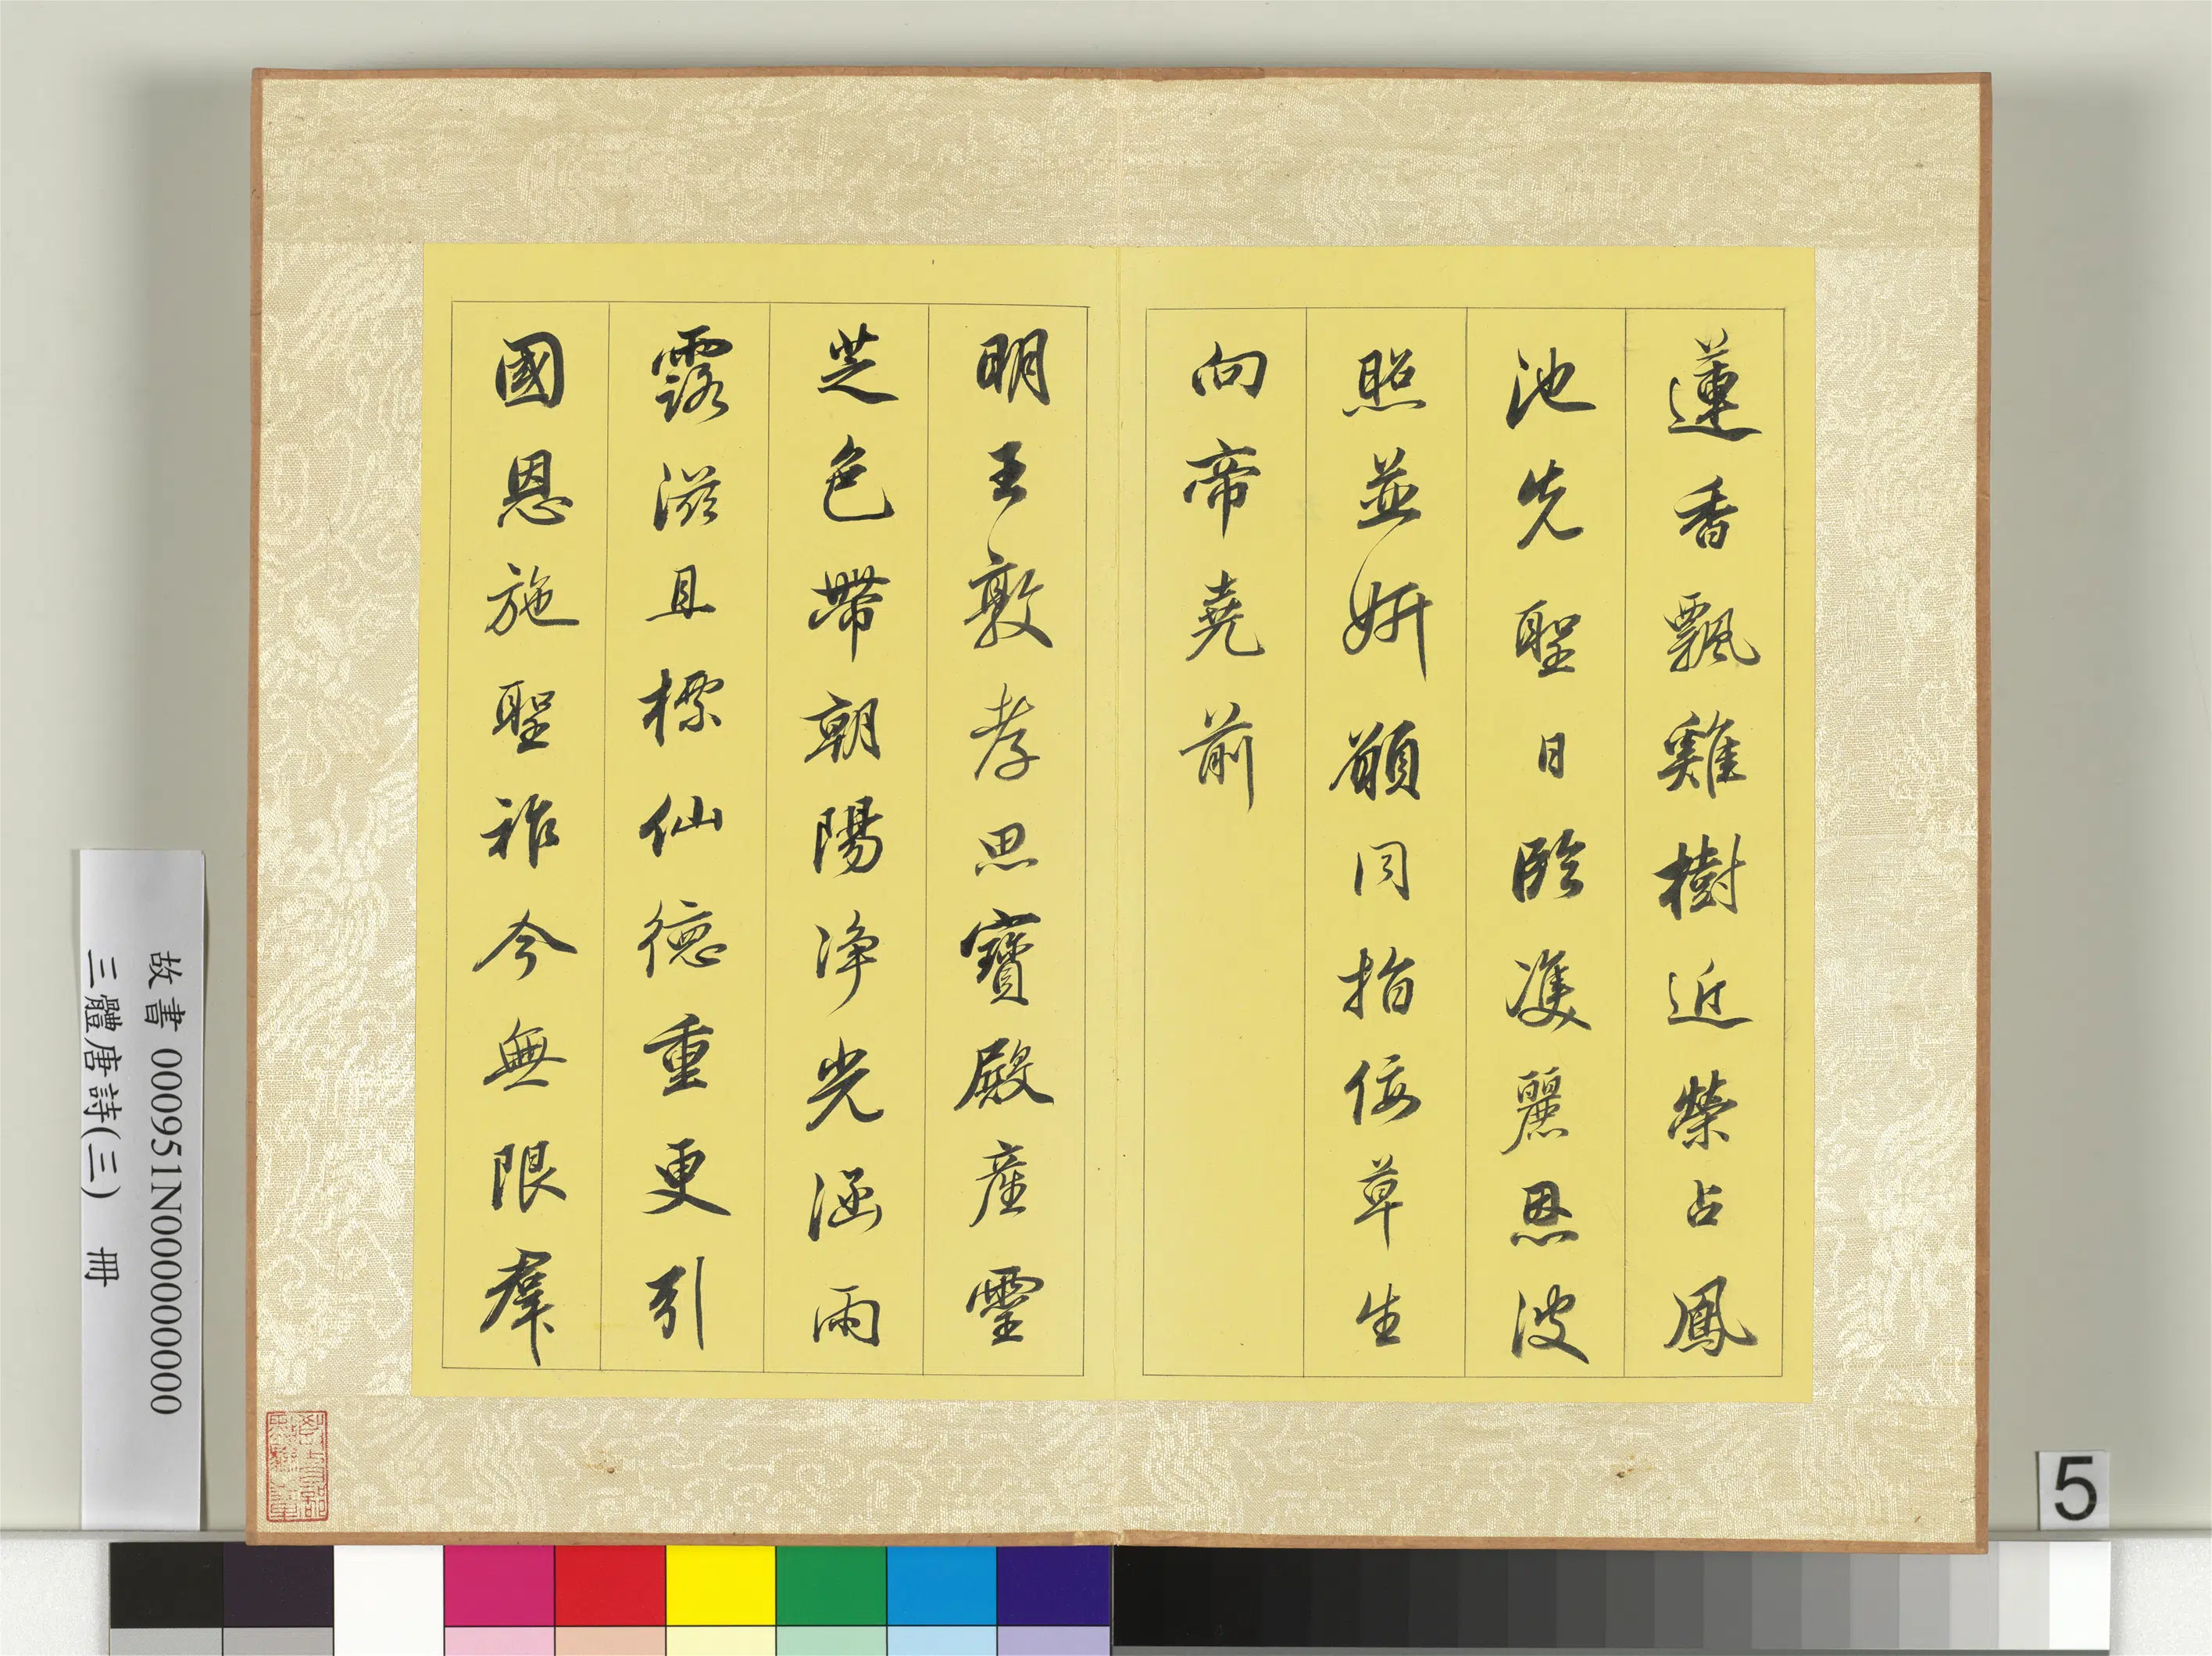 蓮香飄雞樹近榮占鳳
池先聖日臨雙麗恩波
照並妍願同指佞草生
向帝堯前
明王敦孝思寶殿產靈
芝色帶朝陽淨光涵雨
露滋且標仙德重更引
國恩施聖祚今無限群
故書 000951N000000000
三體唐詩(三) 冊
5